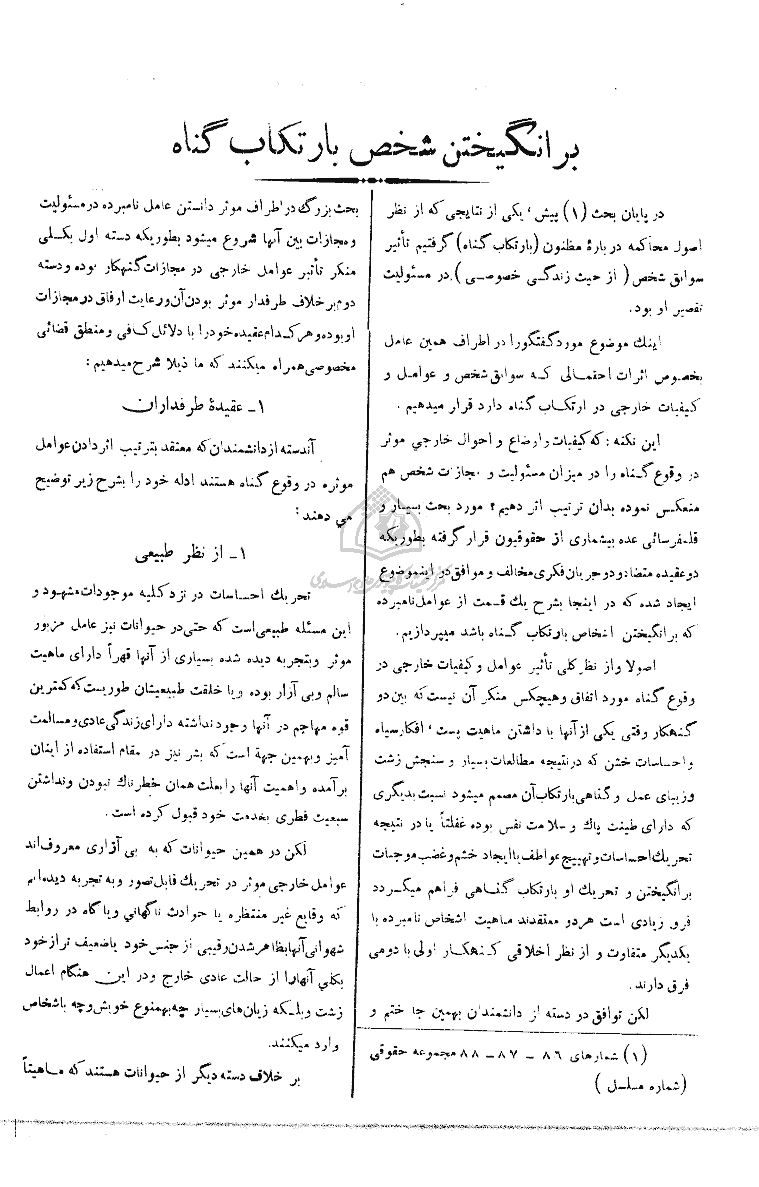 برانگیختن شخص بارتکاب گناه
در پایان بحث (۱) پیش، یکی از نتایجی که از نظر
اصول محاکمه در بارهٔ مظنون (بارتکاب گناه) گرفتیم تأثیر
سوابق شخص (از حیث زندگی خصوصی) در مسئولیت
تقصیر او بود.
اینك موضوع مورد گفتگو را در اطراف همین عامل
بخصوص اثرات احتمالی که سوابق شخص و عوامل و
کیفیات خارجی در ارتکاب گناه دارد قرار میدهیم.
این نکته: که کیفیات و اوضاع و احوال خارجی موثر
در وقوع گناه را در میزان مسئولیت و مجازات شخص هم
منعکس نموده بدان ترتیب اثر دهیم؟ مورد بحث بسیار و
قلمفرسائی عده بیشماری از حقوقیون قرار گرفته بطوریکه
دو عقیده متضاد و دو جریان فکری مخالف و موافق در اینموضوع
ایجاد شده که در اینجا بشرح یك قسمت از عوامل نامبرده
که برانگیختن اشخاص بارتکاب گناه باشد میپردازیم.
اصولا و از نظر کلی تأثیر عوامل و کیفیات خارجی در
وقوع گناه مورد اتفاق و هیچکس منکر آن نیست که بین دو
گنهکار وقتی یکی از آنها با داشتن ماهیت پست، افکار سیاه
و احساسات خشن که در نتیجه مطالعات بسیار و سنجش زشت
و زیبای عمل و گناهی بارتکاب آن مصمم میشود نسبت بدیگری
که دارای طینت پاك و سلامت نفس بوده غفلتاً یا در نتیجه
تحریك احساسات و تهییج عواطف با ایجاد خشم و غضب موجبات
برانگیختن و تحریك او بارتکاب گناهی فراهم میگردد
فرق زیادی است هر دو معتقدند ماهیت اشخاص نامبرده با
یکدیگر متفاوت و از نظر اخلاقی گنهکار اولی با دومی
فرق دارند.
لکن توافق دو دسته از دانشمندان بهمین جا ختم و
(۱) شمارهای ۸۶ - ۸۷ - ۸۸ مجموعه حقوقی
(شماره مسلسل)
بحث بزرگ در اطراف موثر دانستن عامل نامبرده در مسئولیت
و مجازات بین آنها شروع میشود بطوریکه دسته اول بکلی
منکر تأثیر عوامل خارجی در مجازات گنهکار بوده و دسته
دوم بر خلاف طرفدار موثر بودن آن و رعایت ارفاق در مجازات
او بوده و هر کدام عقیده خود را با دلائل کافی و منطق قضائی
مخصوصی همراه میکنند که ما ذیلا شرح میدهیم:
۱ـ عقیدهٔ طرفداران
آندسته از دانشمندان که معتقد بترتیب اثر دادن عوامل
موثره در وقوع گناه هستند ادله خود را بشرح زیر توضیح
می دهند:
۱ـ از نظر طبیعی
تحریك احساسات در نزد کلیه موجودات مشهود و
این مسئله طبیعی است که حتی در حیوانات نیز عامل مزبور
موثر و بتجربه دیده شده بسیاری از آنها قهراً دارای ماهیت
سالم و بی آزار بوده و یا خلقت طبیعیشان طوریست که کمترین
قوه مهاجم در آنها وجود نداشته دارای زندگی عادی و مسالمت
آمیز و بهمین جهة است که بشر نیز در مقام استفاده از ایشان
برآمده و اهمیت آنها را بعلت همان خطرناك نبودن و نداشتن
سبعیت فطری بخدمت خود قبول کرده است.
لکن در همین حیوانات که به بی آزاری معروف اند
عوامل خارجی موثر در تحریك قابل تصور و به تجربه دیده‌ایم
که وقایع غیر منتظره یا حوادث ناگهانی و یا گاه در روابط
شهوانی آنها بظاهر شدن رقیبی از جنس خود یا ضعیف تر از خود
بکلی آنهارا از حالت عادی خارج و در این هنگام اعمال
زشت و بلکه زیان‌های بسیار چه بهمنوع خویش و چه باشخاص
وارد میکنند.
بر خلاف دسته دیگر از حیوانات هستند که ماهیتاً